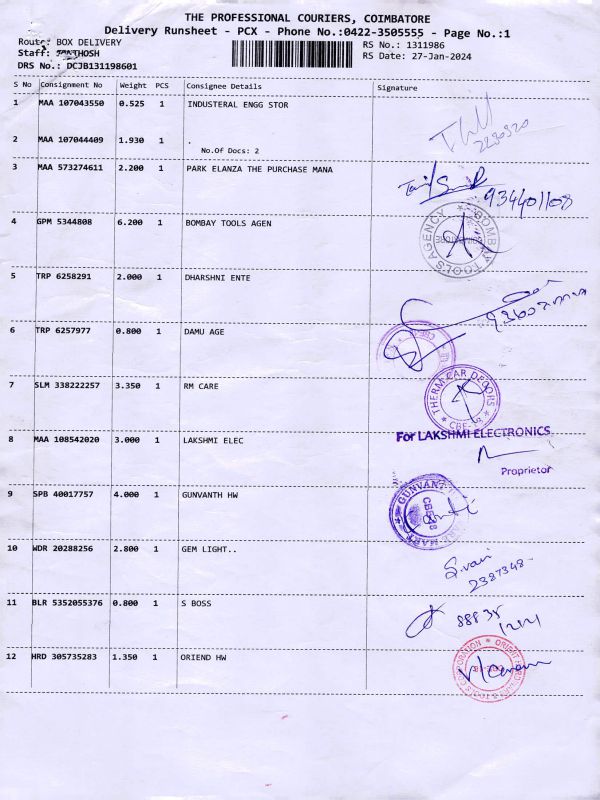 THE PROFESSIONAL COURIERS, COIMBATORE
Delivery Runsheet - PCX - Phone No.:0422-3505555 - Page No.:1
Route: BOX DELIVERY
RS No.: 1311986
Staff: SANTHOSH
RS Date: 27-Jan-2024
DRS No.: DCJB131198601
S No Consignment No Weight PCS Consignee Details Signature
1 MAA 107043550 0.525 1 INDUSTERAL ENGG STOR
2 MAA 107044409 1.930 1 .
No.Of Docs: 2
3 MAA 573274611 2.200 1 PARK ELANZA THE PURCHASE MANA
934401108
4 GPM 5344808 6.200 1 BOMBAY TOOLS AGEN
BOMBAY TOOLS AGENCY
5 TRP 6258291 2.000 1 DHARSHNI ENTE
6 TRP 6257977 0.800 1 DAMU AGE
7 SLM 338222257 3.350 1 RM CARE
THERM CAR DECORS
8 MAA 108542020 3.000 1 LAKSHMI ELEC
For LAKSHMI ELECTRONICS
Proprietor
9 SPB 40017757 4.000 1 GUNVANTH HW
GUNVANT
10 WDR 20288256 2.800 1 GEM LIGHT..
2387348
11 BLR 5352055376 0.800 1 S BOSS
12 HRD 305735283 1.350 1 ORIEND HW